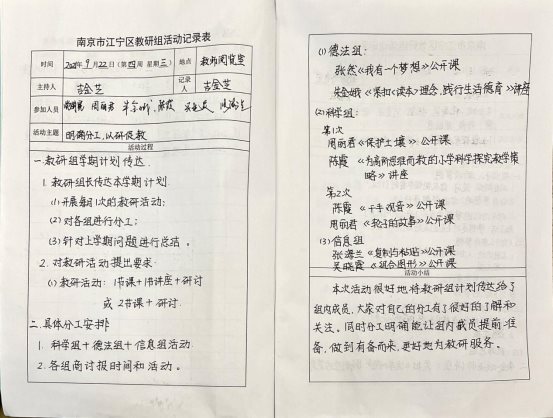 南京市江宁区教研组活动记录表
时间 2021年9月22日(第四周 星期三) 地点 教师阅览室
主持人 吉金芝 记录人 吉金芝
参加人员 周丽君 陈霞
活动主题 明确分工,以研促教
活动过程
一.教研组学期计划传达.
1. 教研组长传达本学期计划.
(1) 开展每月1次的教研活动;
(2) 对各组进行分工;
(3) 针对上学期问题进行总结。
2. 对教研活动提出要求.
(1) 教研活动: 1节课+1节讲座+研讨
或 2节课 + 研讨.
二.具体分工安排
1. 科学组+德法组+信息组活动.
2. 各组商讨报时间和活动。
(1) 德法组:
张然《我有一个梦想》公开课
朱金娥《紧扣《读本》理念,践行生活德育》讲座
(2) 科学组:
第1次
周丽君《保护土壤》公开课
陈霞《为高阶思维而教的小学科学探究教学策
略》讲座
第2次
陈霞《千手观音》公开课
周丽君《轮子的故事》公开课
(3) 信息组
张海兰《复制与粘贴》公开课
吴晓霞《组合图形》公开课
活动小结
本次活动很好地将教研组计划传达给了
组内成员,大家对自己的分工有了很好的了解和
关注。同时分工明确能让组内成员提前准
备,做到有备而来,更好地为教研服务。